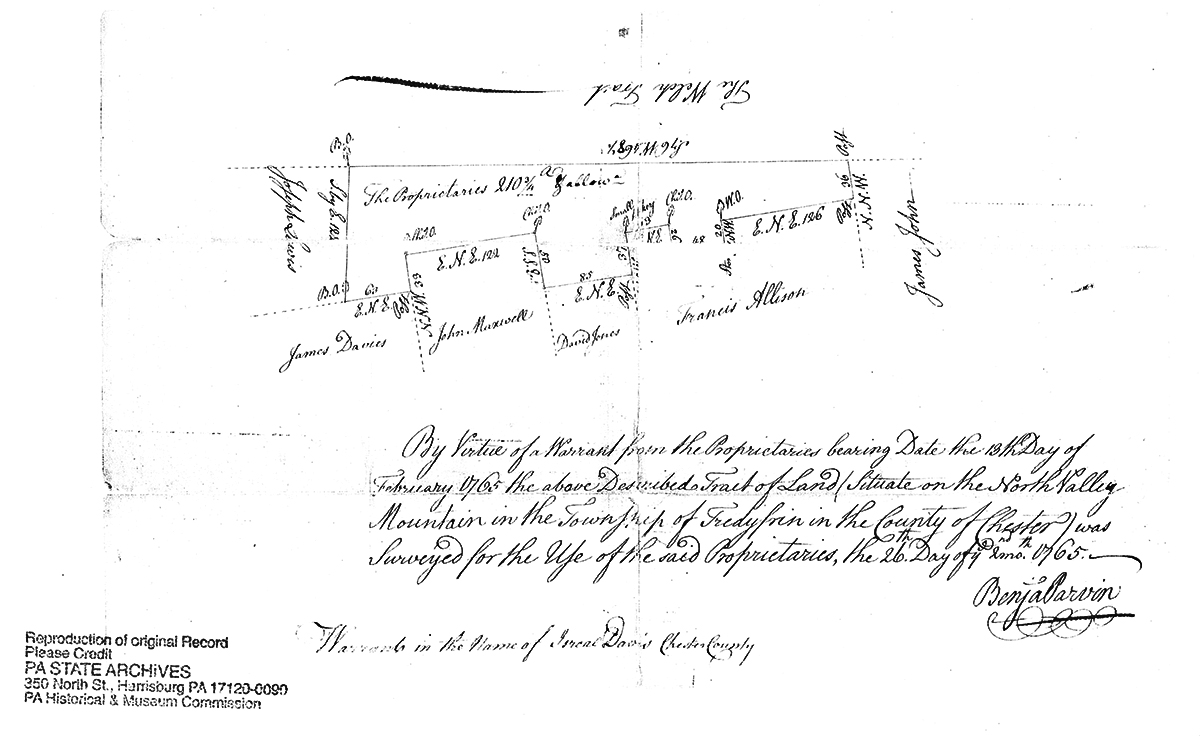 The Welch Tract
B.O.
Post
The Proprietaries 210 3/4 a & allowce
Joseph Lewis
S. by E. 125
W.O.
E. N. E. 122
Cht.O.
Small Hickory
Cht.O.
W.O.
E. N. E. 126
Post
36
N. N. W.
James John
B.O.
63
E. N. E.
Post
33
N. N. W.
S.S.E.
85
E. N. E.
Post
37
N. E.
48
20
N.W.
James Davies
John Maxwell
David Jones
Francis Allison
By Virtue of a Warrant from the Proprietaries bearing Date the 13th Day of
February 1765 the above Described Tract of Land (Situate on the North Valley
Mountain in the Township of Tredyffrin in the County of Chester) was
Surveyed for the Use of the said Proprietaries, the 26th Day of ye 2nd mo. 1765.
Benja Parvin
Warrant in the Name of Isreal Davis Chester County
Reproduction of original Record
Please Credit
PA STATE ARCHIVES
350 North St., Harrisburg PA 17120-0090
PA Historical & Museum Commission